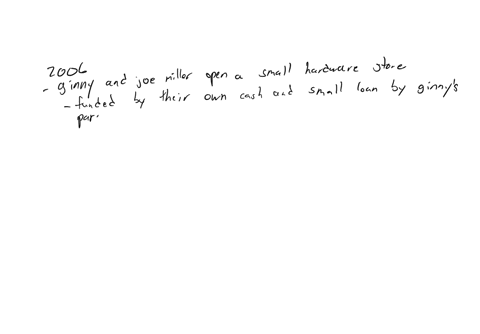 2006
- ginny and joe miller open a small hardware store
- funded by their own cash and small loan by ginny's
par.